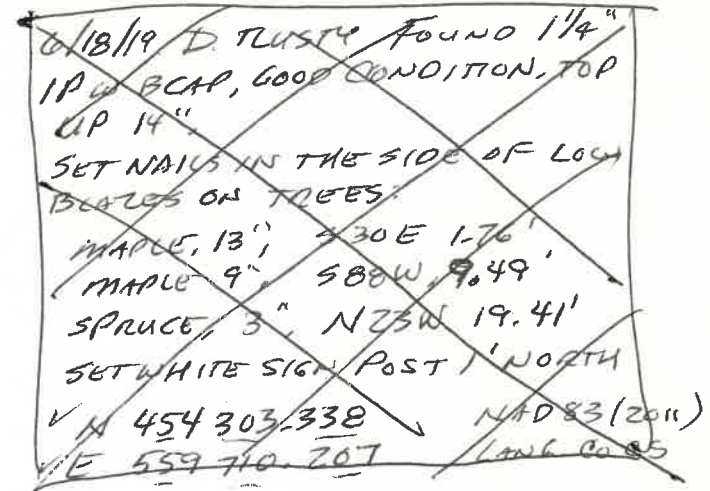 6/18/19 D. TRUSTY FOUND 1 1/4"
IP W BCAP, GOOD CONDITION, TOP
UP 14",
SET NAILS IN THE SIDE OF LOW
BLAZES ON TREES:
MAPLE, 13", S30E 1.76'
MAPLE 9", S88W, 9.49'
SPRUCE, 3", N23W 19.41'
SET WHITE SIGN POST 1' NORTH
✓ N 454 303.338 NAD 83 (2011)
E 559 710.207 LANG CO CS